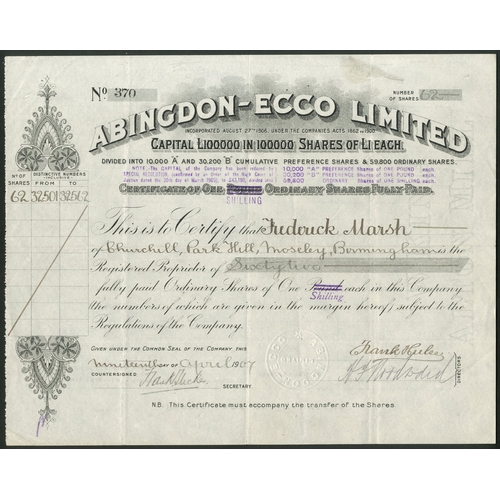 No 370
NUMBER OF SHARES 62
ABINGDON-ECCO LIMITED
INCORPORATED AUGUST 27TH 1906, UNDER THE COMPANIES ACTS 1862 TO 1900.
CAPITAL £100000 IN 100000 SHARES OF £1 EACH.
DIVIDED INTO 10,000 "A" AND 30,200 "B" CUMULATIVE PREFERENCE SHARES & 59,800 ORDINARY SHARES.
NOTE. The CAPITAL of the Company has been reduced by
SPECIAL RESOLUTION
10,000 "A" PREFERENCE Shares of ONE POUND each
30,200 "B" PREFERENCE Shares of ONE POUND each
59,800 ORDINARY Shares of ONE SHILLING each
CERTIFICATE OF ONE POUND ORDINARY SHARES FULLY PAID.
SHILLING
No OF SHARES
DISTINCTIVE NUMBERS INCLUSIVE
FROM TO
62 32501 32562
This is to Certify that Frederick Marsh
of Churchill, Park Hill, Moseley, Birmingham is the
Registered Proprietor of Sixty two
fully paid Ordinary Shares of One Pound each in this Company
Shilling
the numbers of which are given in the margin hereof, subject to the
Regulations of the Company.
GIVEN UNDER THE COMMON SEAL OF THE COMPANY THIS
nineteenth DAY OF April 1907
COUNTERSIGNED
SECRETARY
DIRECTORS
N.B. This Certificate must accompany the transfer of the Shares.